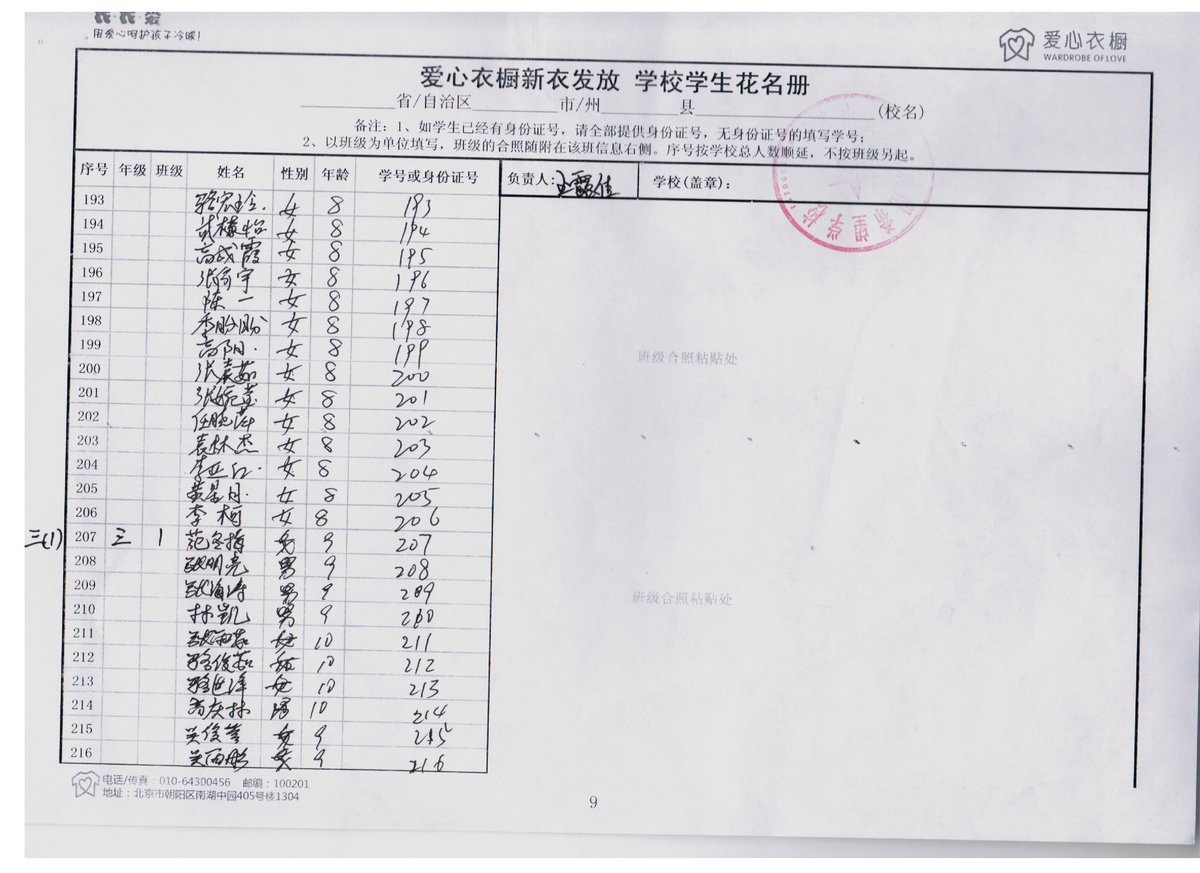 用爱心呵护孩子冷暖!
爱心衣橱
WARDROBE OF LOVE
爱心衣橱新衣发放 学校学生花名册
省/自治区 市/州 县 (校名)
备注: 1、如学生已经有身份证号, 请全部提供身份证号, 无身份证号的填写学号;
2、以班级为单位填写, 班级的合照随附在该班信息右侧。序号按学校总人数顺延, 不按班级另起。
序号 年级 班级 姓名 性别 年龄 学号或身份证号 负责人: 学校(盖章):
希望学校
193 女 8 193
194 女 8 194
195 高成霞 女 8 195
196 女 8 196
197 陈一 女 8 197
198 李盼盼 女 8 198
199 高阳 女 8 199
200 张嘉茹 女 8 200
201 女 8 201
202 任晓萍 女 8 202
203 袁林杰 女 8 203
204 李亚红 女 8 204
205 黄星月 女 8 205
206 李柯 女 8 206
三(1) 207 三 1 范冬梅 9 207
208 张明亮 男 9 208
209 张海涛 男 9 209
210 林凯 男 9 210
211 女 10 211
212 骆俊茹 女 10 212
213 女 10 213
214 高庆林 男 10 214
215 女 9 215
216 吴雨彤 女 9 216
班级合照粘贴处
班级合照粘贴处
电话/传真: 010-64300456 邮编: 100201
地址: 北京市朝阳区南湖中园405号楼1304
9